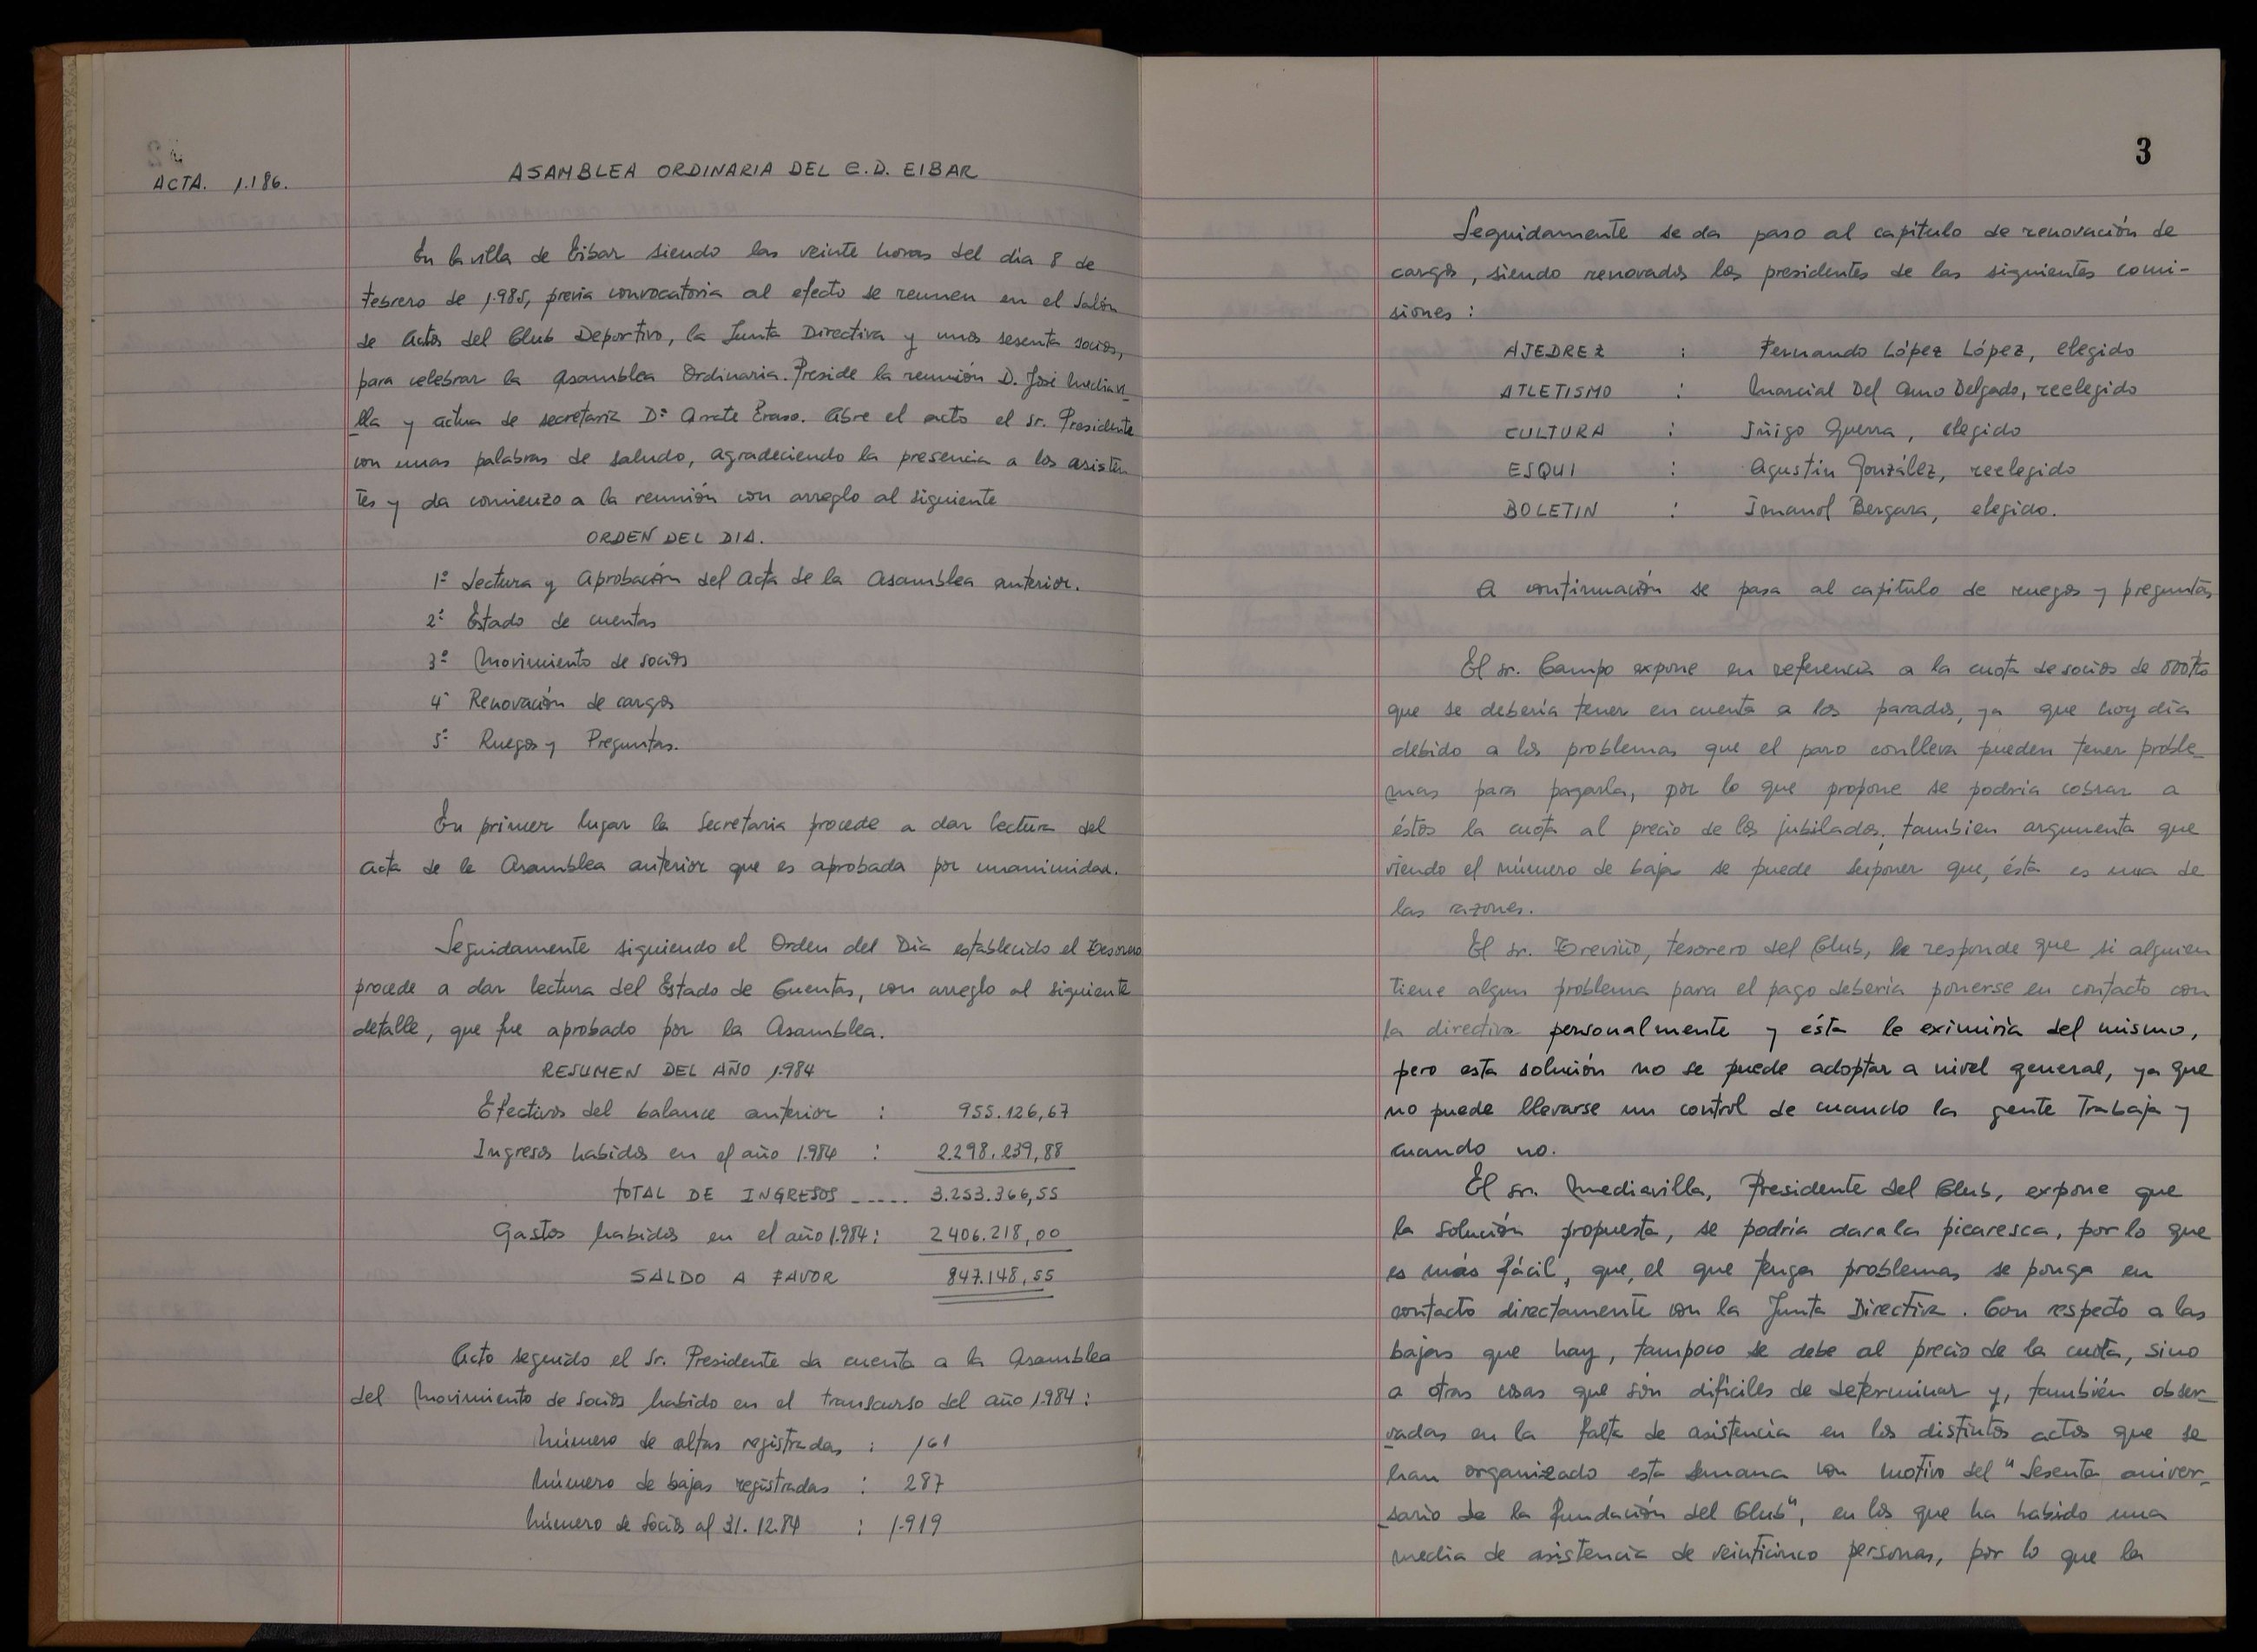 ACTA. 1.186.
ASAMBLEA ORDINARIA DEL C.D. EIBAR
En la villa de Eibar siendo las veinte horas del dia 8 de
Febrero de 1.985, previa convocatoria al efecto se reunen en el Salón
de Actos del Club Deportivo, la Junta Directiva y unos sesenta socios,
para celebrar la Asamblea Ordinaria. Preside la reunión D. José Mediavi_
lla y actua de secretaria Dª Arrate Eraso. Abre el acto el Sr. Presidente
con unas palabras de saludo, agradeciendo la presencia a los asisten
tes y da comienzo a la reunión con arreglo al siguiente
ORDEN DEL DIA.
1º Lectura y Aprobación del Acta de la Asamblea anterior.
2º Estado de cuentas
3º Movimiento de socios
4º Renovación de cargos
5º Ruegos y Preguntas.
En primer lugar la Secretaria procede a dar lectura del
acta de la Asamblea anterior que es aprobada por unanimidad.
Seguidamente siguiendo el Orden del Dia establecido el Tesorero
procede a dar lectura del Estado de Cuentas, con arreglo al siguiente
detalle, que fue aprobado por la Asamblea.
RESUMEN DEL AÑO 1.984
Efectivos del balance anterior : 955.126,67
Ingresos habidos en el año 1.984 : 2.298.239,88
TOTAL DE INGRESOS ..... 3.253.366,55
Gastos habidos en el año 1.984 : 2406.218,00
SALDO A FAVOR 847.148,55
Acto seguido el Sr. Presidente da cuenta a la Asamblea
del Movimiento de Socios habido en el transcurso del año 1.984 :
Número de altas registradas : 161
Número de bajas registradas : 287
Número de Socios al 31.12.84 : 1.919
3
Seguidamente se da paso al capitulo de renovación de
cargos, siendo renovados los presidentes de las siguientes comi-
siones :
AJEDREZ : Fernando López López, elegido
ATLETISMO : Marcial Del Amo Delgado, reelegido
CULTURA : Iñigo Guerra, elegido
ESQUI : Agustín González, reelegido
BOLETIN : Imanol Bergara, elegido.
A continuación se pasa al capitulo de ruegos y preguntas
El sr. Campo expone en referencia a la cuota de socios de
que se debería tener en cuenta a los parados, ya que hoy día
debido a los problemas que el paro conlleva pueden tener proble_
mas para pagarla, por lo que propone se podria cobrar a
éstos la cuota al precio de los jubilados, tambien argumenta que
viendo el número de bajas se puede suponer que, ésta es una de
las razones.
El sr. Treviño, tesorero del Club, le responde que si alguien
tiene algun problema para el pago debería ponerse en contacto con
la directiva personalmente y ésta le eximiría del mismo,
pero esta solución no se puede adoptar a nivel general, ya que
no puede llevarse un control de cuando la gente Trabaja y
cuando no.
El sr. Mediavilla, Presidente del Club, expone que
la solución propuesta, se podría dar a la picaresca, por lo que
es más fácil, que, el que tenga problemas se ponga en
contacto directamente con la Junta Directiva. Con respecto a las
bajas que hay, tampoco se debe al precio de la cuota, sino
a otras cosas que són dificiles de determinar y, también obser_
vadas en la falta de asistencia en los distintos actos que se
han organizado esta semana con motivo del "Sesenta aniver_
sario de la fundación del Club", en los que ha habido una
media de asistencia de veinticinco personas, por lo que la